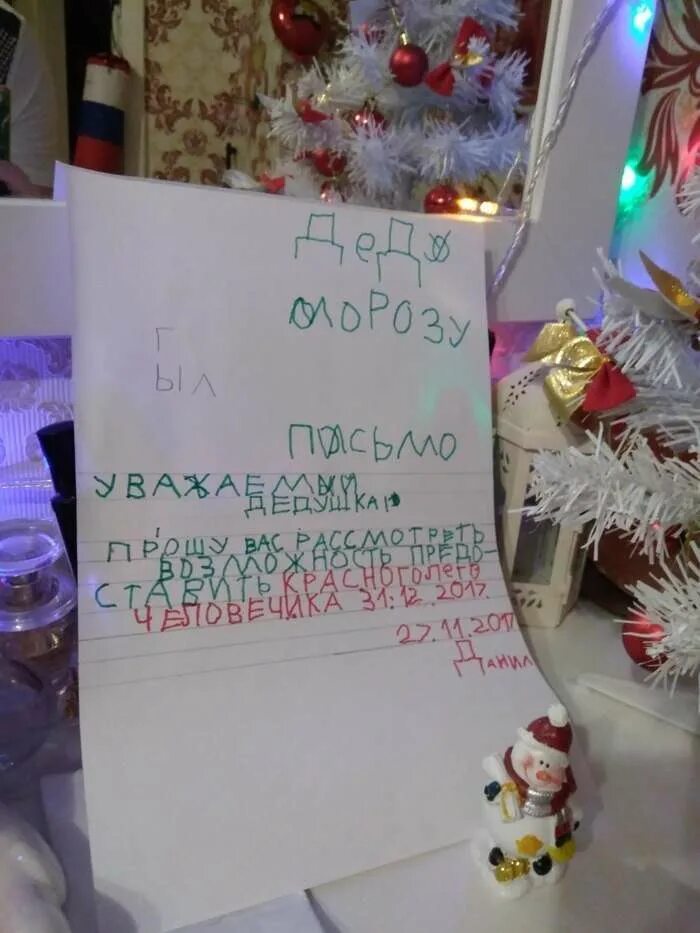 ДЕДУ
МОРОЗУ
Г
ЫЛ
ПИСЬМО
УВАЖАЕМЫЙ
ДЕДУШКА
ПРОШУ ВАС РАССМОТРЕТЬ
ВОЗМОЖНОСТЬ ПРЕДО-
СТАВИТЬ КРАСНОГО ЛЕГО
ЧЕЛОВЕЧИКА 31.12.2017.
27.11.2017
ДАНИЛ